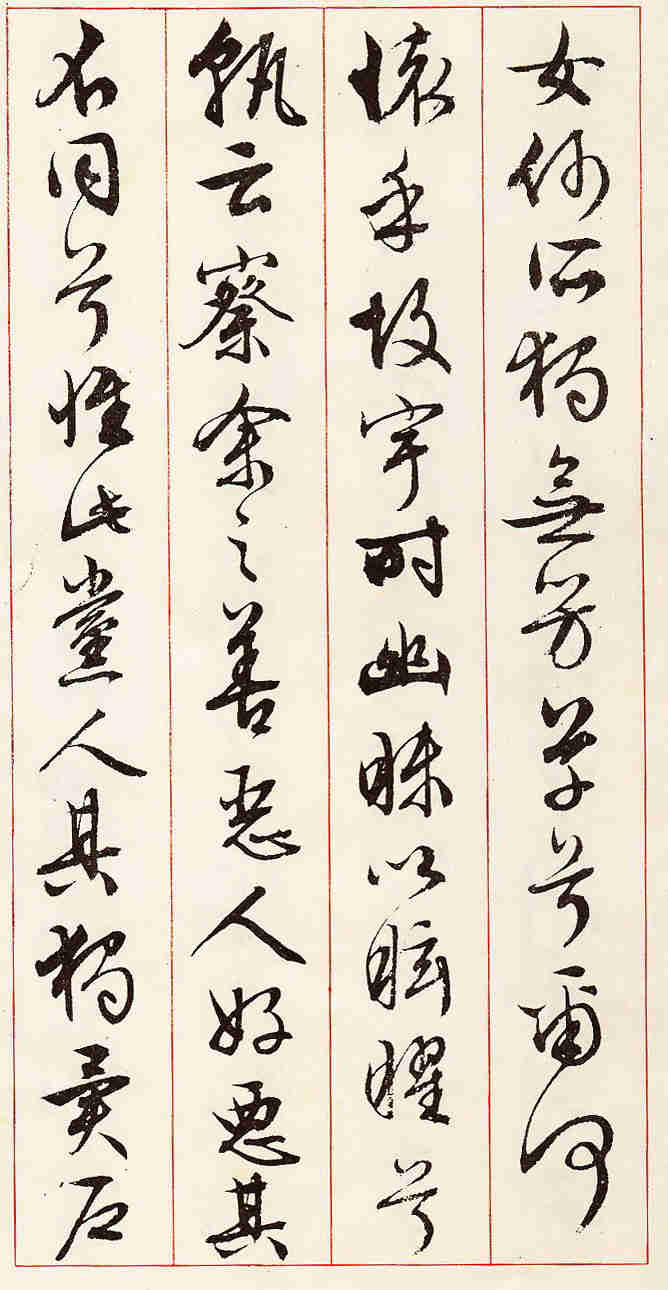 女何所獨無芳草兮爾何
懷乎故宇時幽昧以眩曜兮
孰云察余之善惡人好惡其
不同兮惟此黨人其獨異戶